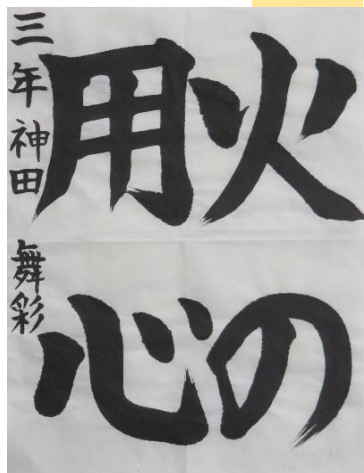 火の
用心
三年 神田 舞彩